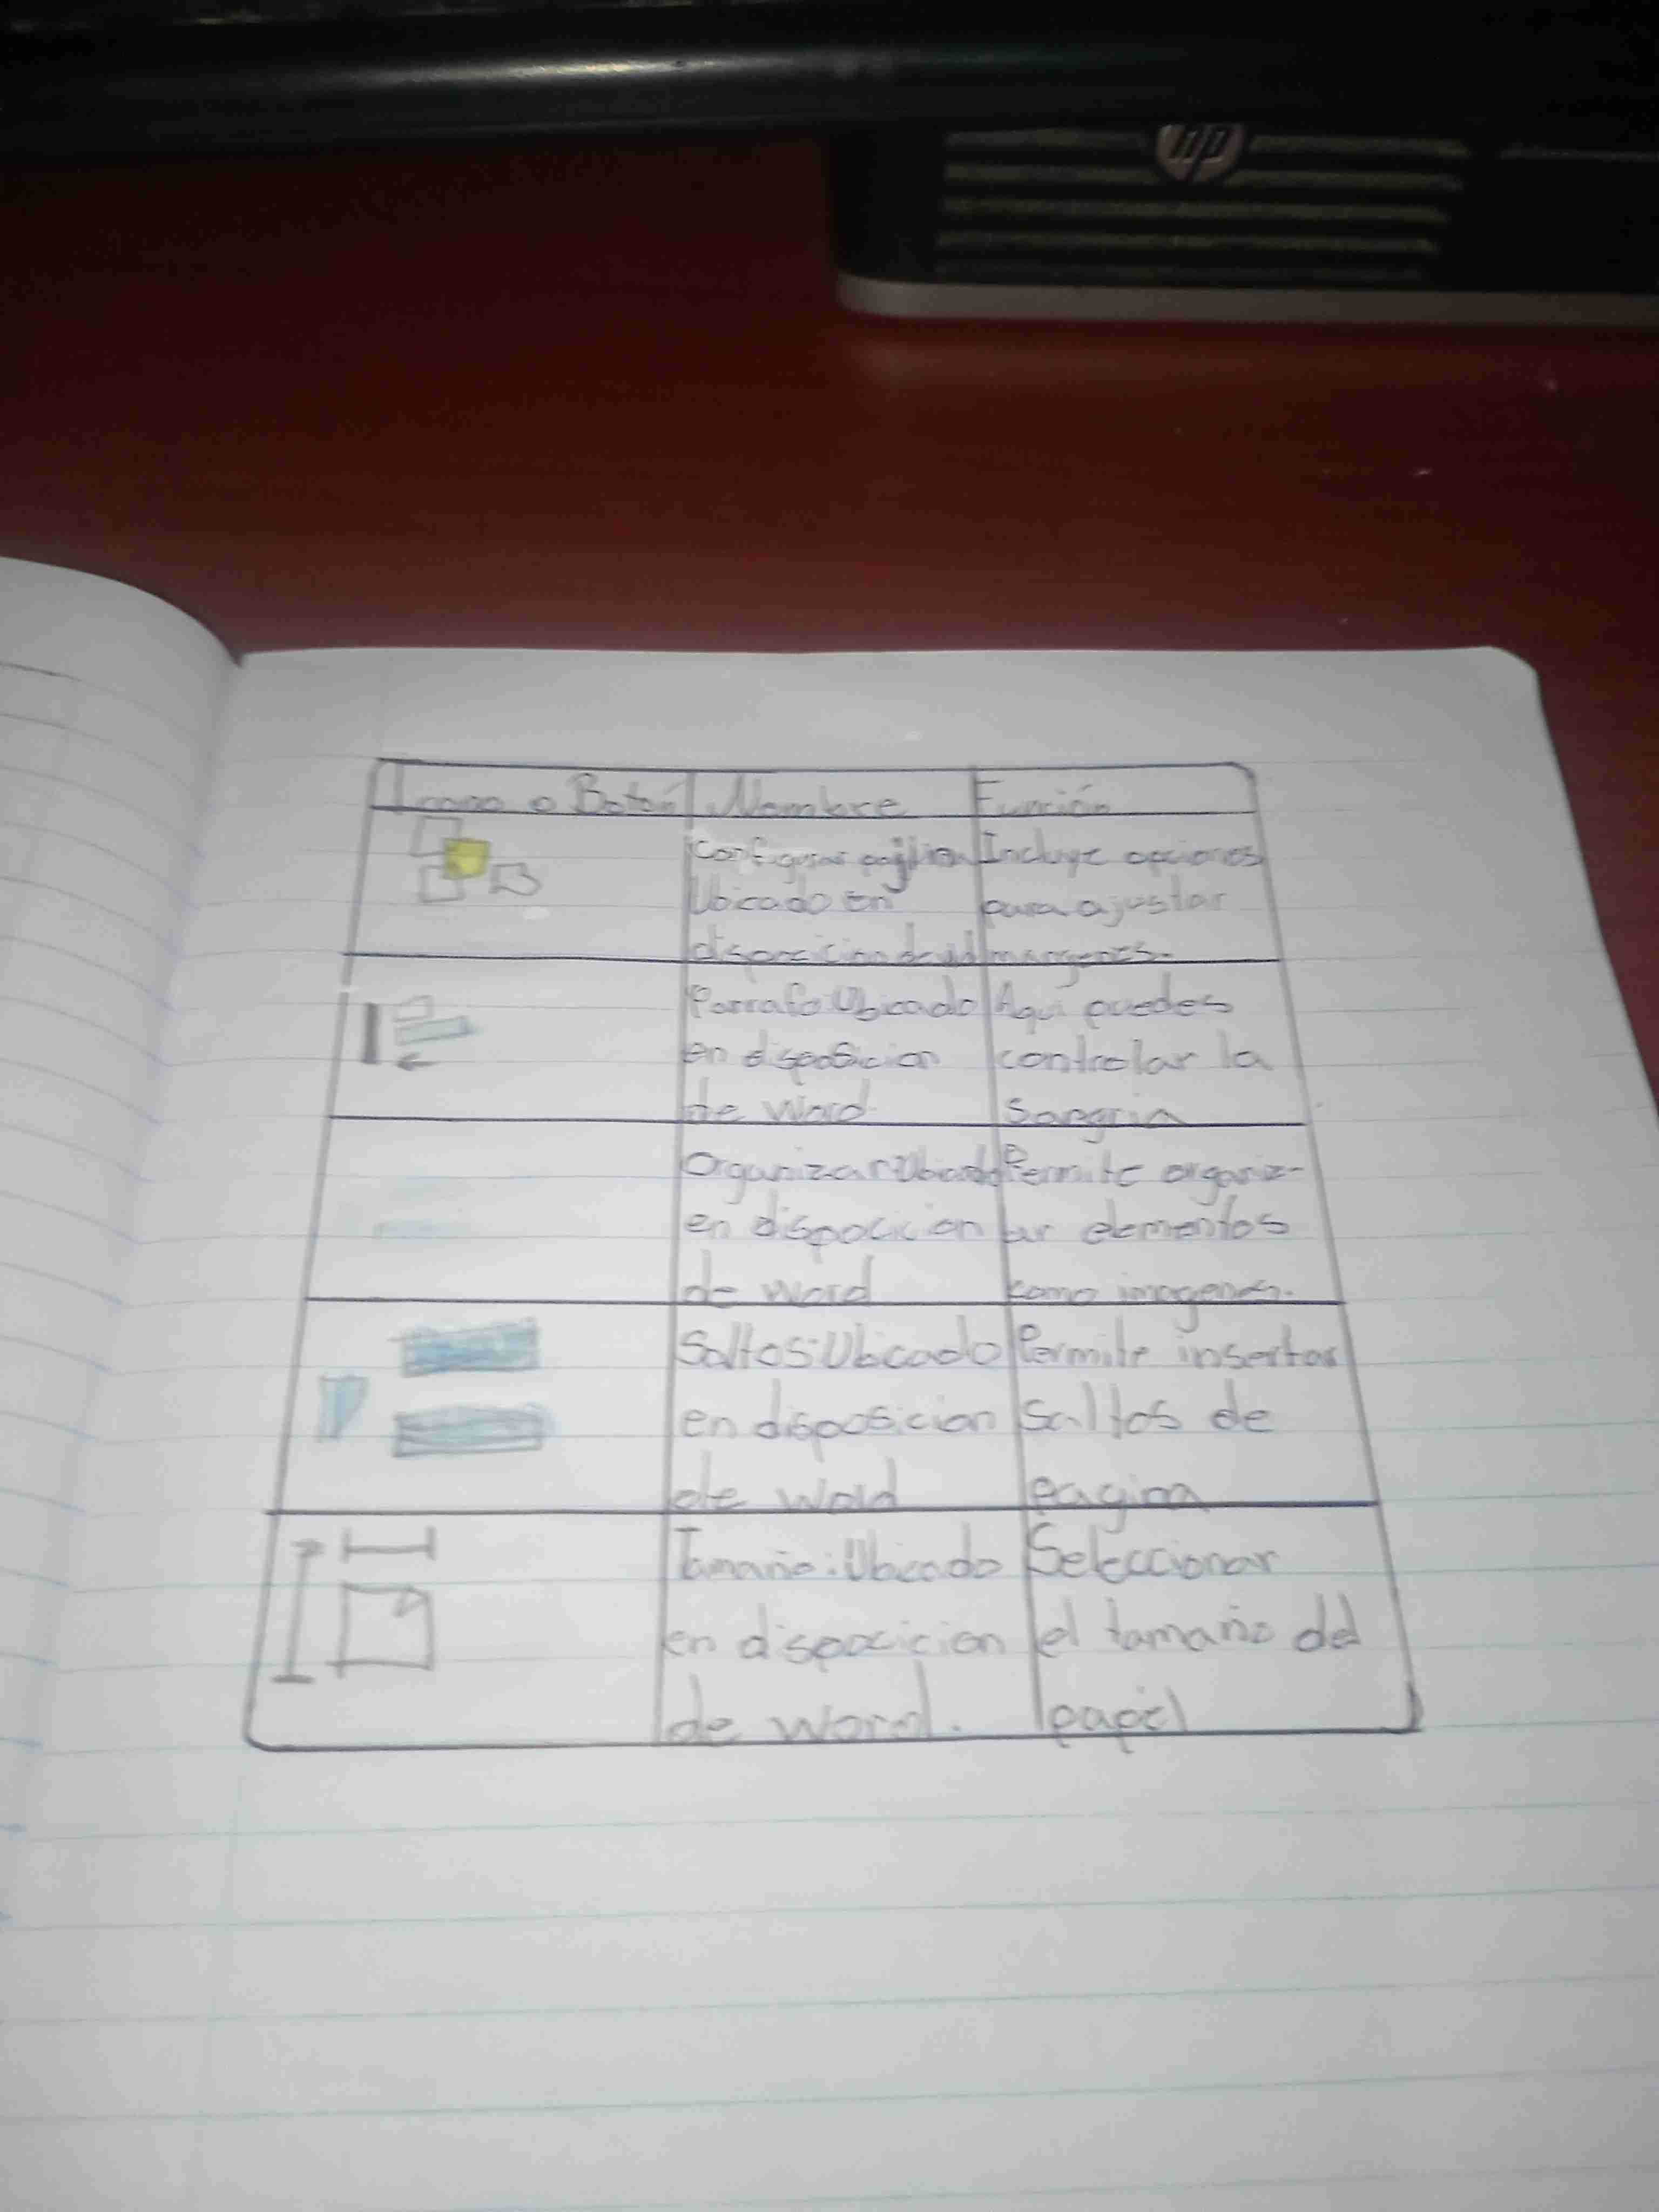 hp
Icono o Botón Nombre Función
Configurar pagina Incluye opciones
Ubicado en para ajustar
disposicion de margenes.
Parrafo: Ubicado Aqui puedes
en disposicion controlar la
de Word Sangria
Organizar: Ubicado Permite organiz-
en dispocicion ar elementos
de word como imagenes.
Saltos: Ubicado Permite insertar
en disposicion saltos de
de word pagina
Tamaño: Ubicado Seleccionar
en dispocicion el tamaño del
de word. papel